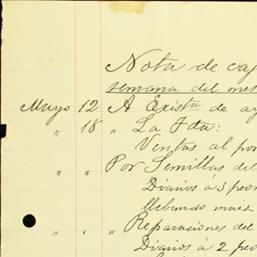 Nota de caj
semana del mes
Mayo 12 A Exist.ª de
" 18 " La Fda:
Ventas al por
" " Por Semillas del
Diarios á 3 pesos
llebando maiz
" " " Reparaciones del
Diarios á 2 pes